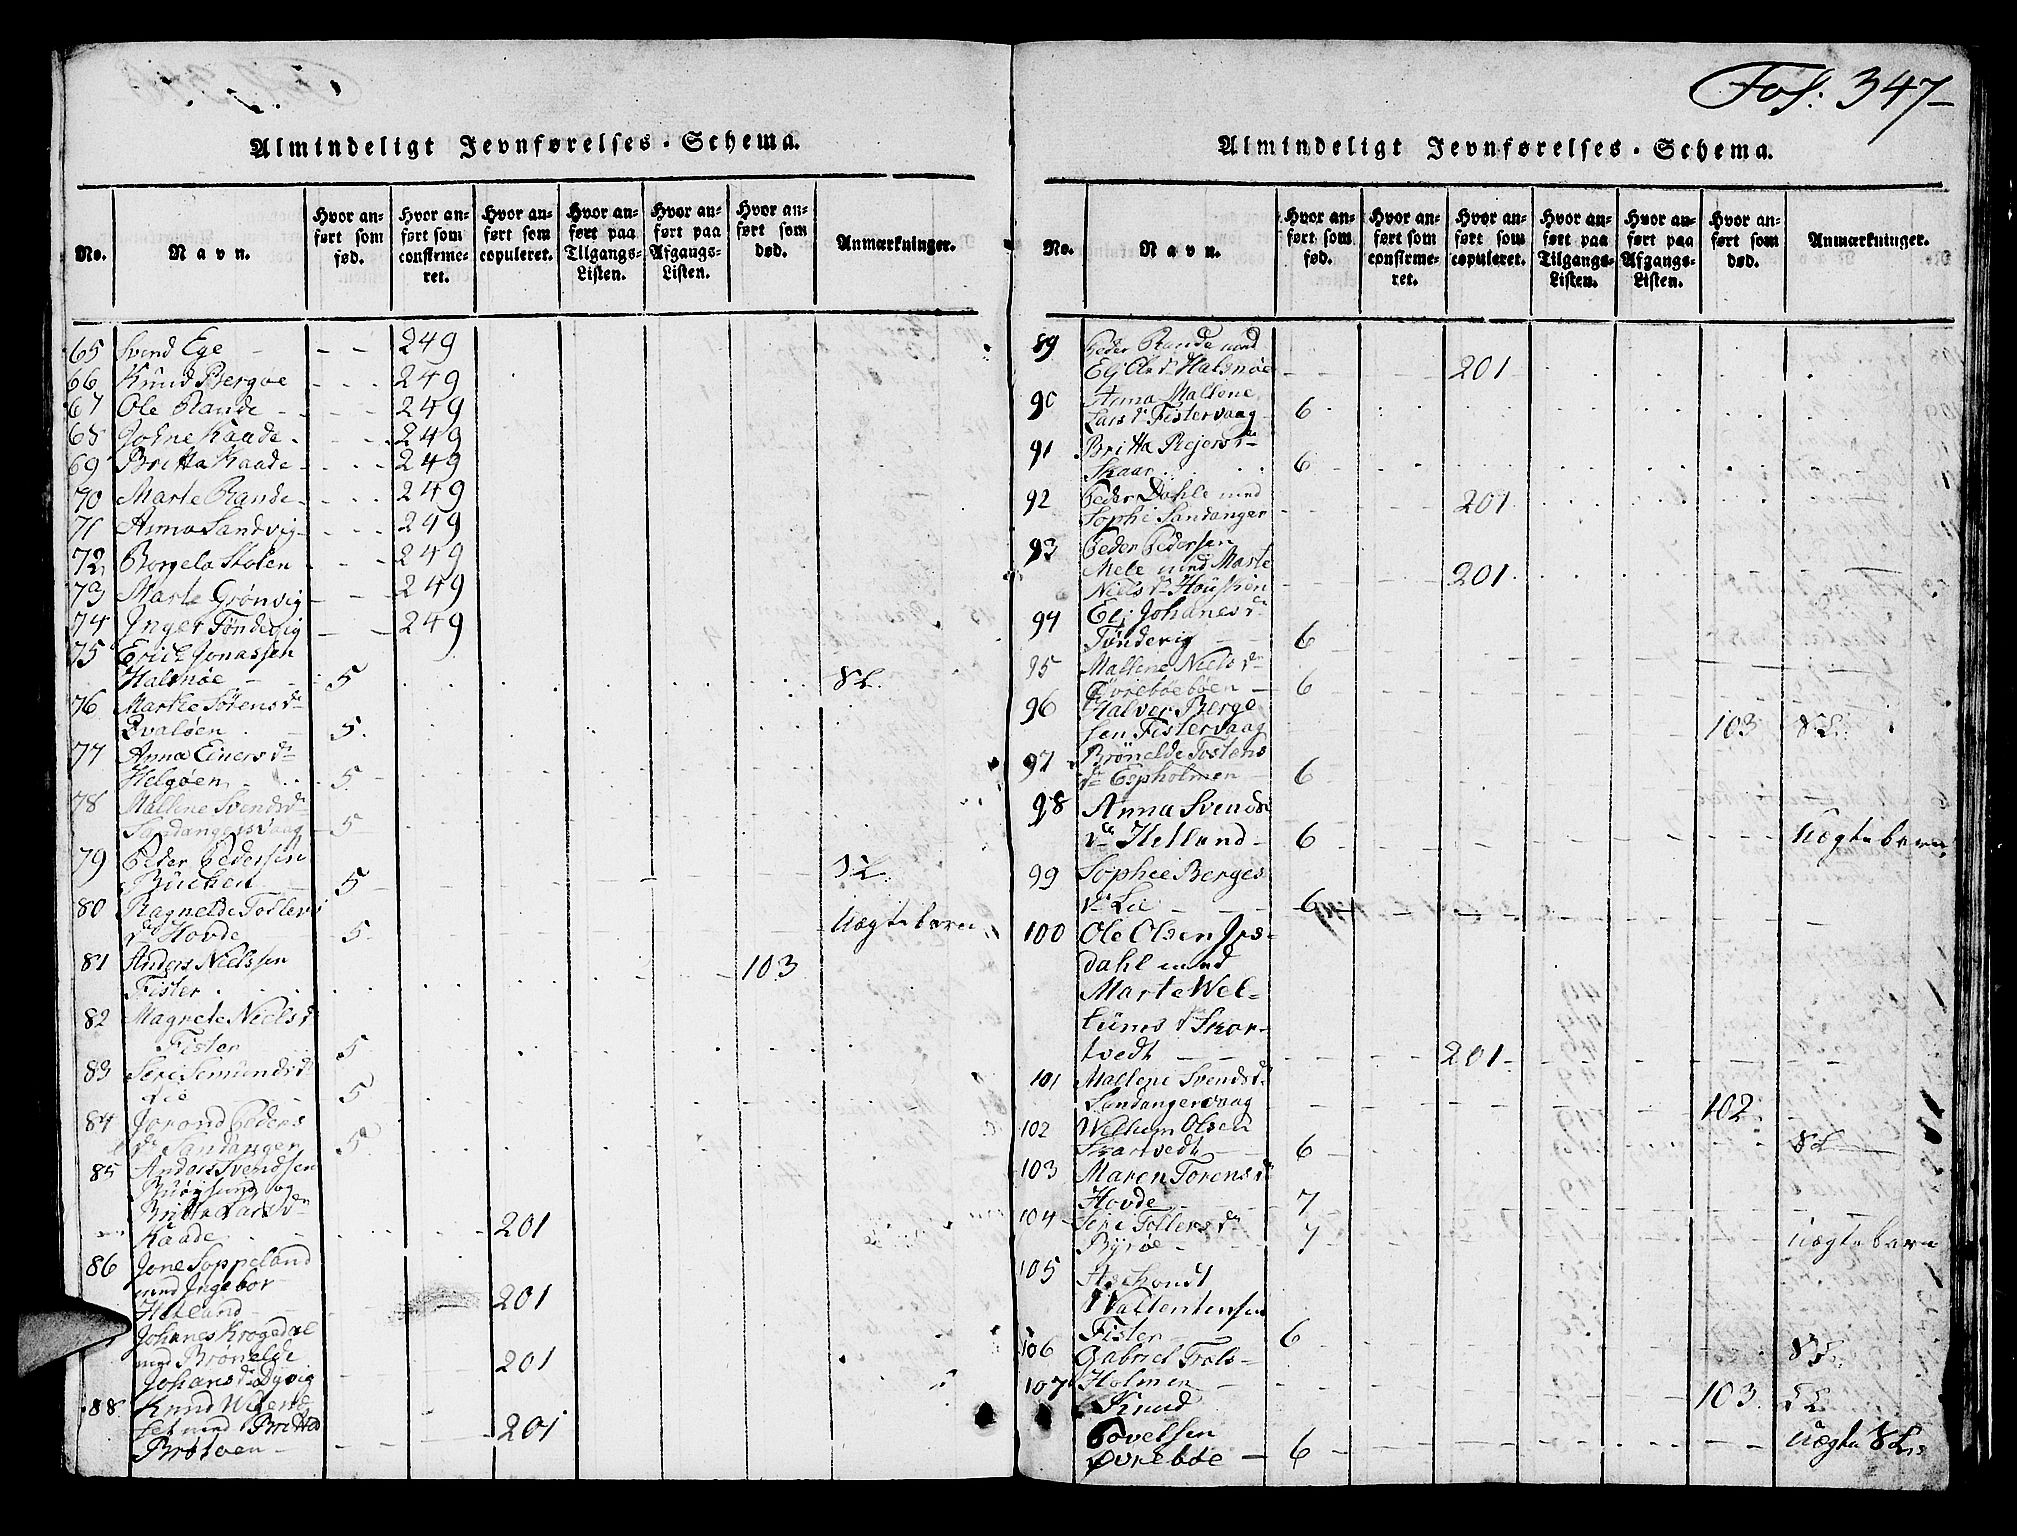 Almindeligt Jevnførelses-Schema.
No. Navn. Hvor anført som fød. Hvor anført som confirmeret. Hvor anført som copuleret. Hvor anført paa Tilgangs-Listen. Hvor anført paa Afgangs-Listen. Hvor anført som død. Anmærkninger.
65 Svend Ege 249
66 Knud Bergøe 249
67 Ole Rande 249
68 Johne Kaade 249
69 Britta Kaade 249
70 Marte Rande 249
71 Anna Sandvig 249
72 Borgela Stolen 249
73 Marte Grönvig 249
74 Inger Töndevig 249
75 Erich Jonassen
Halsnöe 5
76 Marthe Sörens dr
5
77 Anna Einers dr
Helgöen 5
78 Mallene Svends dr
Sandangersvaag 5
79 Peder Pedersen
5
80 Ragnelde Tostens
dr Hovde 5 Uægte barn
81 Anders Nielssen
Fister 103
82 Magnete Niels dr
Fister 5
83 Seri Semunds dr
5
84 Jorond Peders
dr Sandanger 5
85 Anders Svendsen
og
Britta Lars dr
Kaade 201
86 Jone Soppeland
med Ingebor
Hetland 201
Johanes Krogedal
med Brönelde
Johans dr Dyvig 201
88 Knud
med Britta
201
Fol: 347
Almindeligt Jevnførelses-Schema.
No. Navn. Hvor anført som fød. Hvor anført som confirmeret. Hvor anført som copuleret. Hvor anført paa Tilgangs-Listen. Hvor anført paa Afgangs-Listen. Hvor anført som død. Anmærkninger.
89 Peder Rande med
Halsnöe 201
90 Anna Mallene
Lars dr Fistervaag 6
91 Britta Rejers dr
Skaar 6
92 Peder Dahle med
Sophi Sandanger 201
93 Peder Pedersen
Mele med Marte
Niels dr Houshen 201
94 Eli Johanes dr
Tönderig 6
95 Mallene Niels dr
6
96 Halver Berge
sen Fistervaag 103 8 L.
97 Brönelde Tostens
dr Espholmen 6
98 Anna Svends
dr Helland 6 Uægte barn
99 Sophie Berges
dr Lie 6
100 Ole Olsen Jøs-
dahl med
Marte Wel-
lums dr Skor-
tvedt 201
101 Mallene Svends dr
Sandangervaag 102
102 Welhem Olsen
Skartvedt 6 8 L
103 Maren Torens dr
Hovde 7
104 Seri Tollers dr
Byröe 7 Uægte barn
105 Askondt
Wallentensen
Fister 6
106 Gabriel Trols-
107 Holmen 103
Knud
Povelsen
Øvreböe 6 Uægte